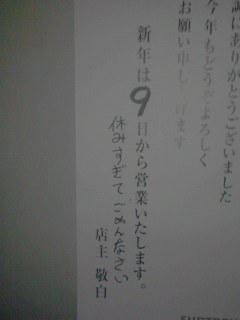 誠にありがとうございました
今年もどうぞよろしく
お願い申し上げます
新年は9日から営業いたします。
休みすぎてごめんなさい
店主 敬白